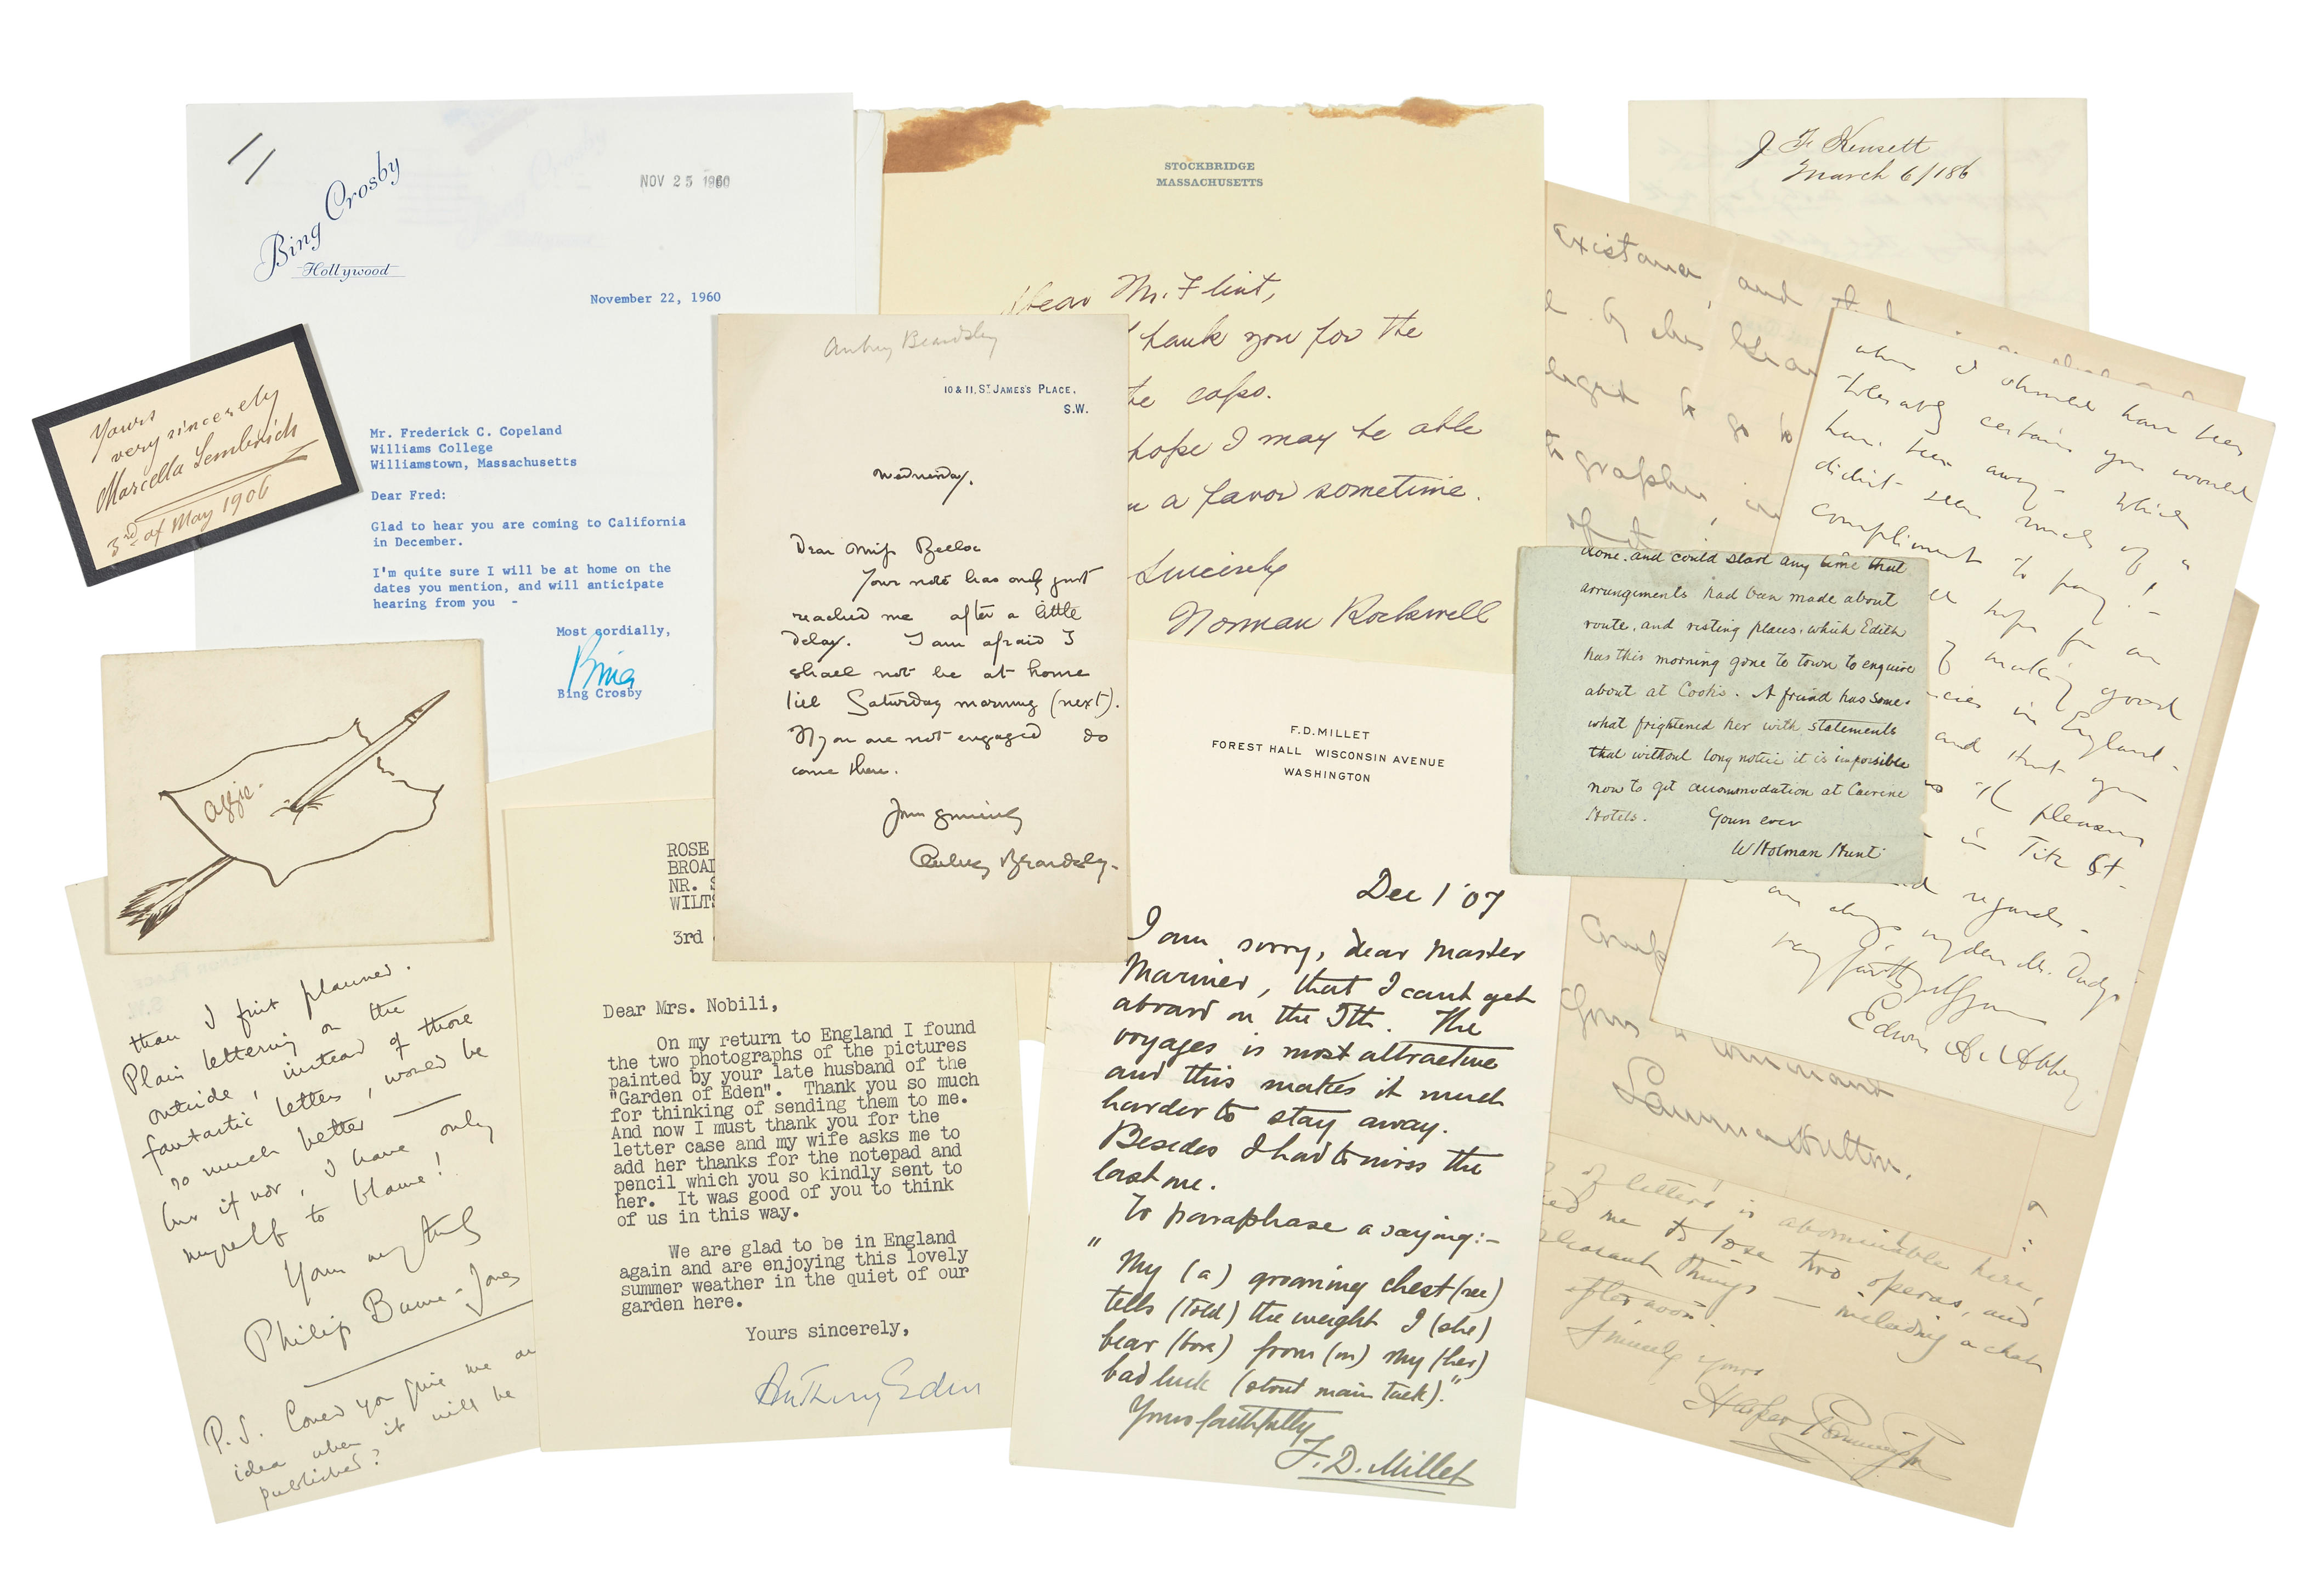 Bing Crosby
Hollywood
NOV 25 1960
November 22, 1960
Mr. Frederick C. Copeland
Williams College
Williamstown, Massachusetts
Dear Fred:
Glad to hear you are coming to California
in December.
I'm quite sure I will be at home on the
dates you mention, and will anticipate
hearing from you -
Most cordially,
Bing
Bing Crosby
Yours
very sincerely
Marcella Sembrich
3rd of May 1906
STOCKBRIDGE
MASSACHUSETTS
Dear Mr. Flint,
thank you for the
caps.
hope I may be able
a favor sometime.
Sincerely
Norman Rockwell
J. F. Kensett
March 6/186
Aubrey Beardsley
10 & 11, ST JAMES'S PLACE,
S.W.
Wednesday.
Dear Miss Belloc
Your note has only just
reached me after a little
delay. I am afraid I
shall not be at home
till Saturday morning (next).
If you are not engaged do
come then.
Yours sincerely
Aubrey Beardsley.
existance, and
to go to
of it
when I should have been
tolerably certain you would
have been away - which
didn't seem much of a
compliment to pay! -
hope for an
making good
in England.
and that you
pleasant
in Tite St.
regards.
I am always my dear Mr.
very faithfully yours
Edwin A. Abbey
done. and could start any time that
arrangements had been made about
route, and resting places, which Edith
has this morning gone to town to enquire
about at Cook's. A friend has some-
what frightened her with statements
that without long notice it is impossible
now to get accommodation at Cairene
Hotels. Yours ever
W Holman Hunt
Aggie.
than I first planned.
Plain lettering on the
outside, instead of those
fantastic letters, would be
so much better —
but if not, I have only
myself to blame!
Yours very truly
Philip Burne-Jones
P.S. Could you give me an
idea when it will be
published?
ROSE
BROAD
NR. S
WILTS
3rd
Dear Mrs. Nobili,
On my return to England I found
the two photographs of the pictures
painted by your late husband of the
"Garden of Eden". Thank you so much
for thinking of sending them to me.
And now I must thank you for the
letter case and my wife asks me to
add her thanks for the notepad and
pencil which you so kindly sent to
her. It was good of you to think
of us in this way.
We are glad to be in England
again and are enjoying this lovely
summer weather in the quiet of our
garden here.
Yours sincerely,
Anthony Eden
F.D. MILLET
FOREST HALL WISCONSIN AVENUE
WASHINGTON
Dec 1 '07
I am sorry, dear Master
Mariner, that I can't get
aboard on the 5th. The
voyages is most attractive
and this makes it much
harder to stay away.
Besides I had to miss the
last one.
To paraphase a saying:-
"My (a) groaning chest (see)
tells (told) the weight I (she)
bear (bore) from (on) my (her)
bad luck (stout main tack)."
Yours faithfully
F. D. Millet
of letters is abominable here,
me to lose two operas, and
pleasant things — including a chat
afternoon.
Sincerely yours
Harper Pennington